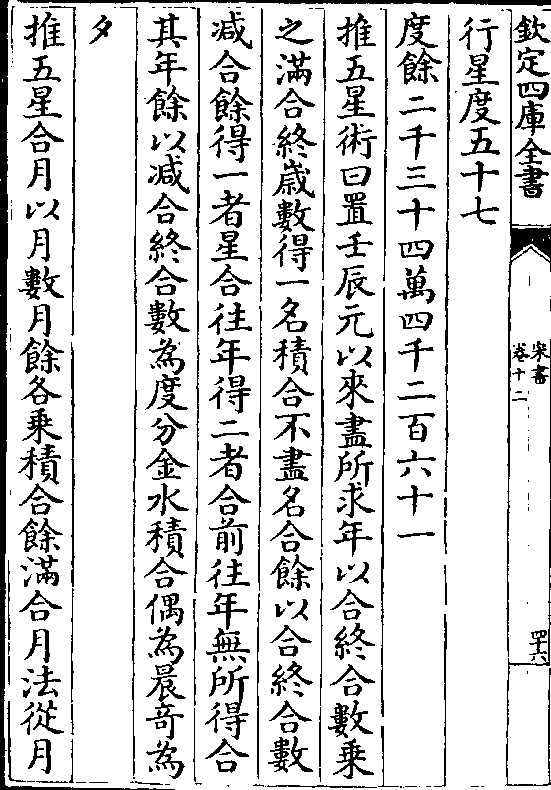 欽定四庫全書
宋書
卷十二
四十六
行星度五十七
度餘二千三十四萬四千二百六十一
推五星術曰置壬辰元以來盡所求年以合終合數乗
之滿合終歳數得一名積合不盡名合餘以合終合數
减合餘得一者星合往年得二者合前往年無所得合
其年餘以减合終合數為度分金水積合偶為晨竒為
夕
推五星合月以月數月餘各乗積合餘滿合月法從月